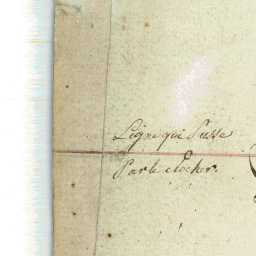 Ligne qui Passe
Par le clocher.